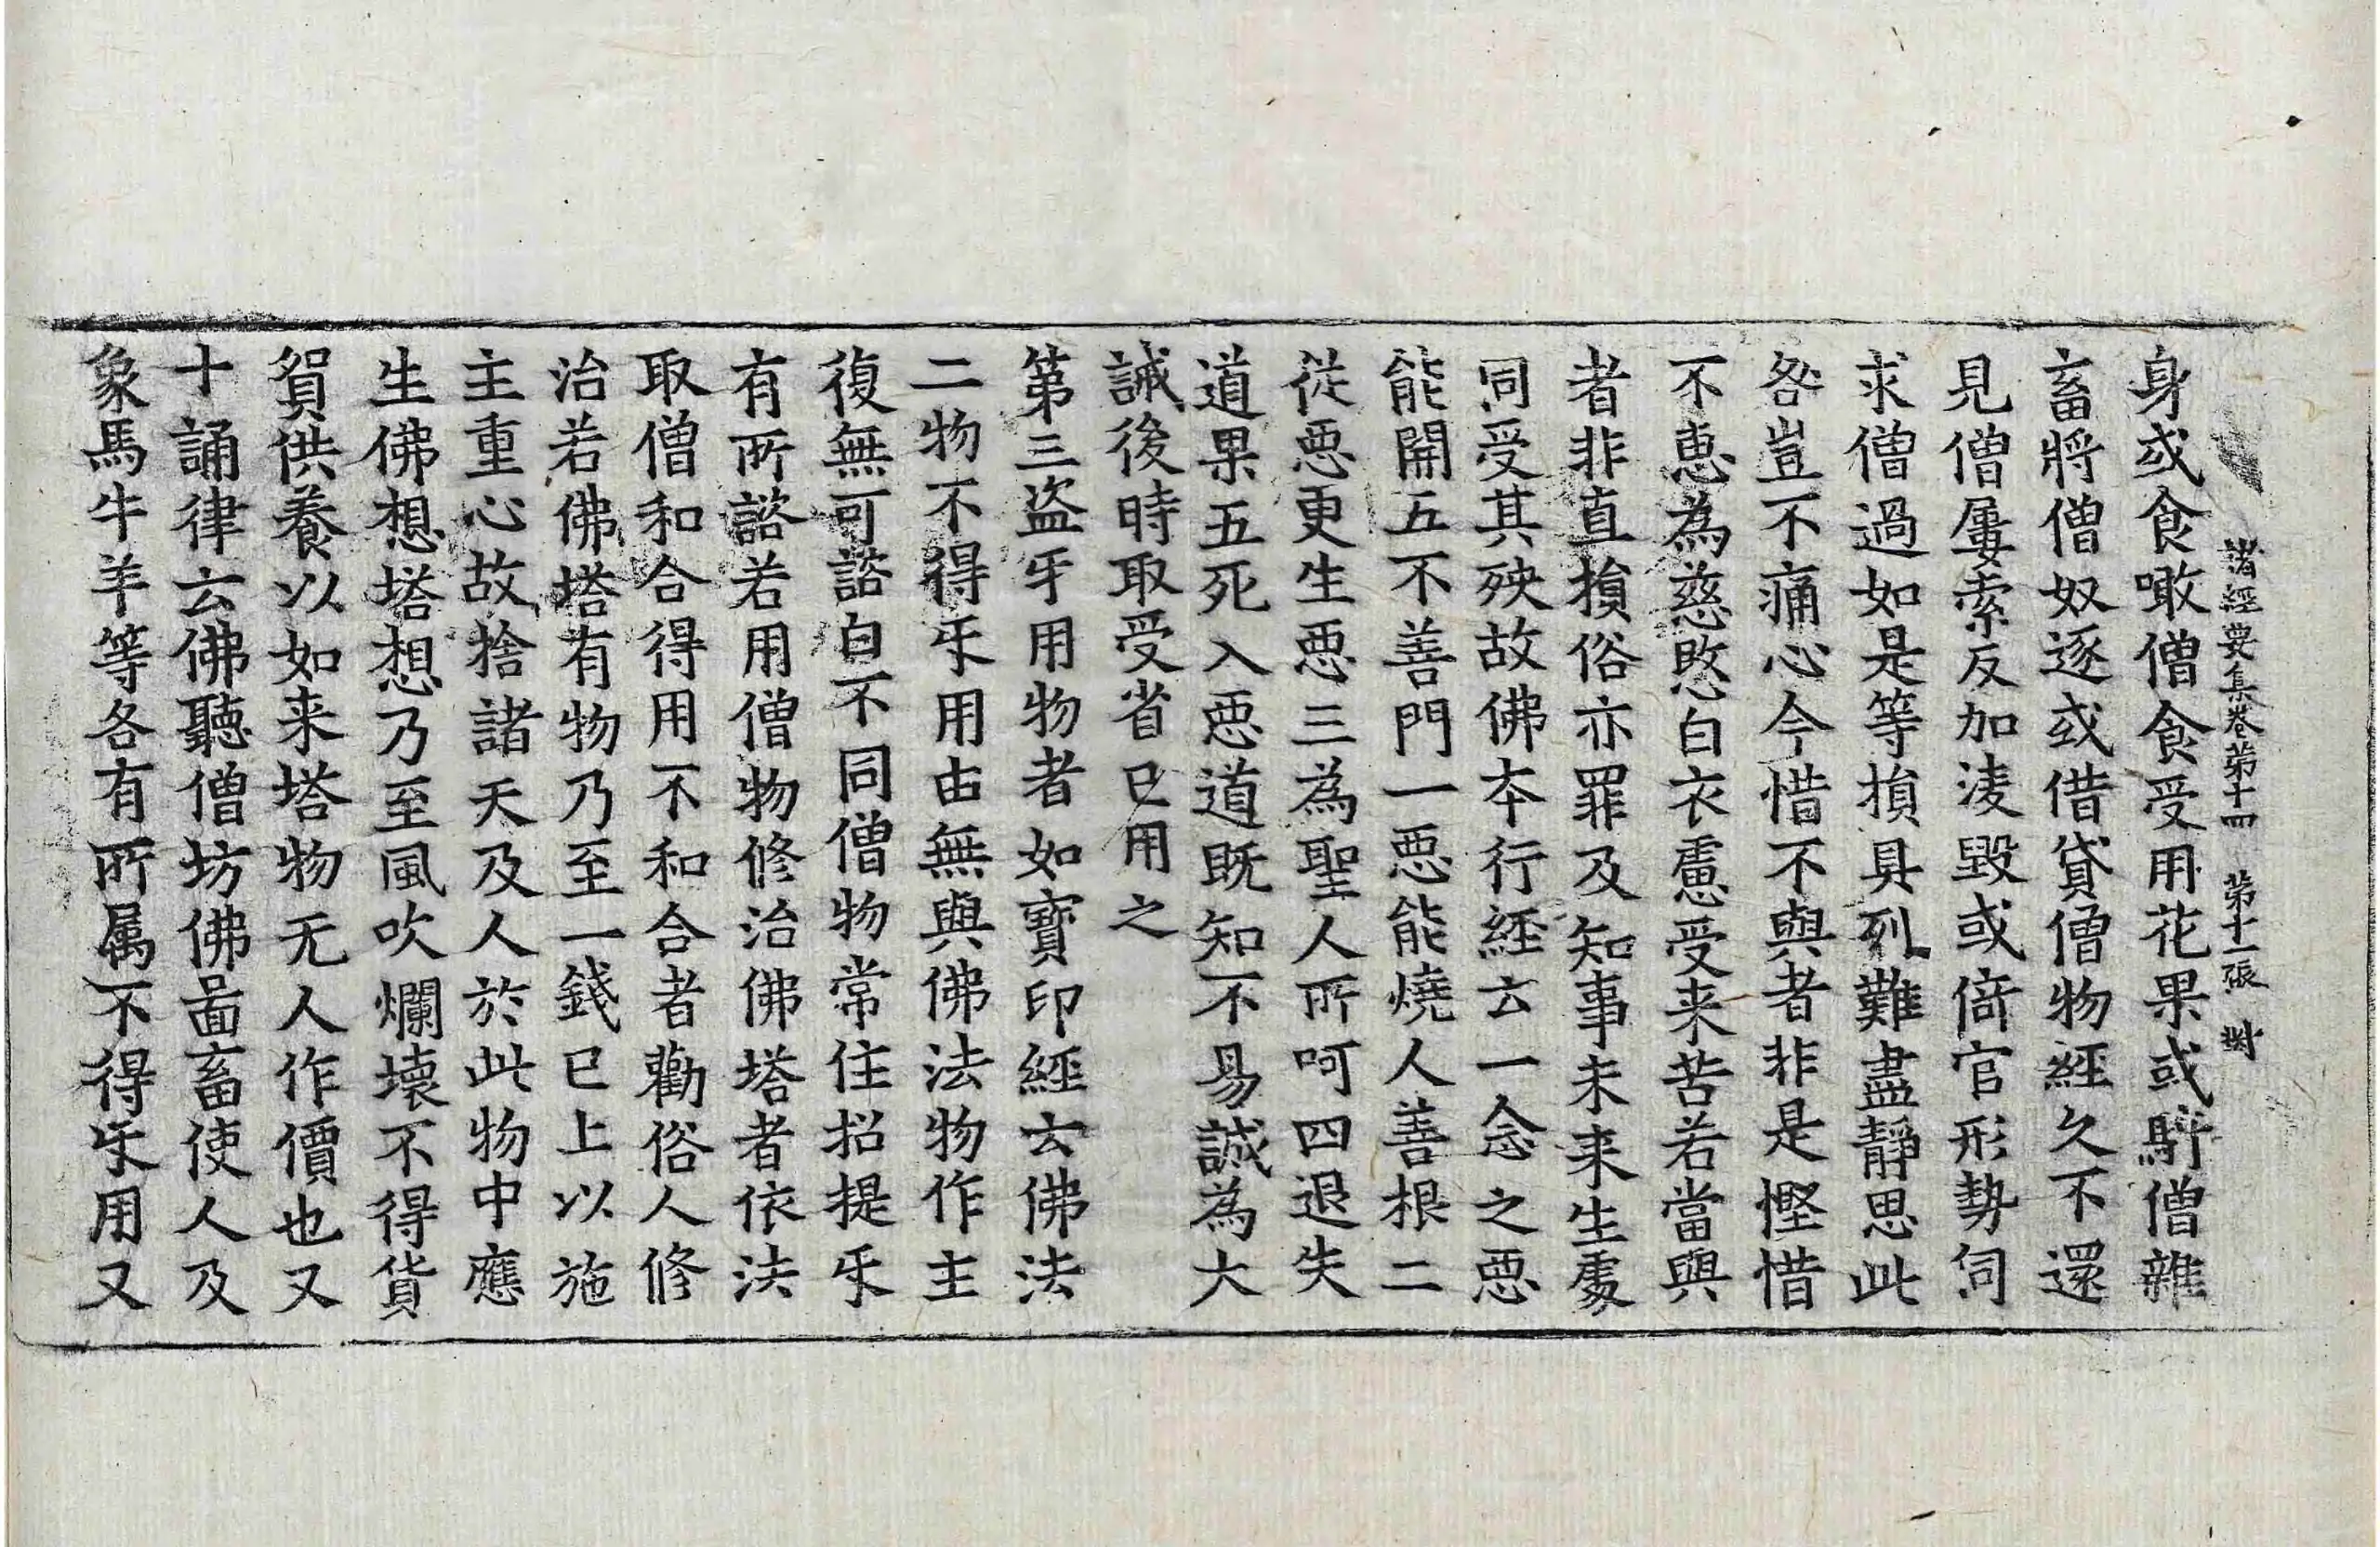 諸經要集卷苐十四　苐十一張　對
身或食噉僧食受用花果或馸僧雜
畜將僧奴逐或借貸僧物經久不還
見僧屢索反加淩毀或倚官形勢伺
求僧過如是等損具列難盡靜思此
咎豈不痛心今惜不與者非是慳惜
不恵為慈愍白衣慮受来苦若當與
者非直損俗亦罪及知事未来生處
同受其殃故佛本行經云一念之惡
能開五不善門一惡能燒人善根二
從惡更生惡三為聖人所呵四退失
道果五死入惡道既知不易誠為大
誡後時取受省已用之
第三盜㸦用物者如寶印經云佛法
二物不得㸦用由無與佛法物作主
復無可諮白不同僧物常住招提㸦
有所諮若用僧物修治佛塔者依法
取僧和合得用不和合者勸俗人修
治若佛塔有物乃至一錢已上以施
主重心故捨諸天及人於此物中應
生佛想塔想乃至風吹爛壞不得貨
貿供養以如来塔物无人作價也又
十誦律云佛聽僧坊佛啚畜使人及
象馬牛羊等各有所属不得㸦用又